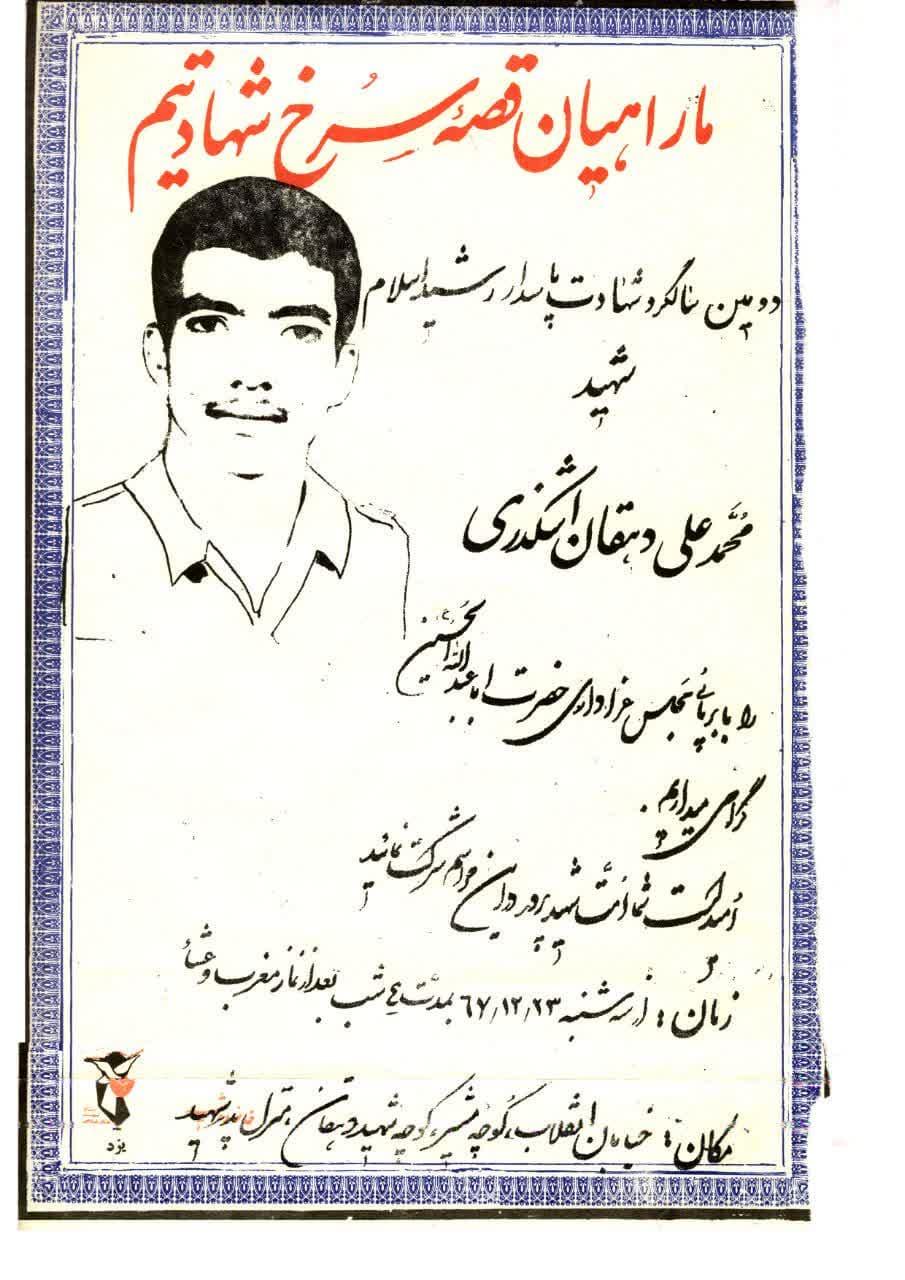 ما راهیان قصهٔ سرخ شهادتیم
دومین سالگرد شهادت پاسدار رشید اسلام
شهید
محمد علی دهقان اشکذری
را با برپائی مجلس عزاداری حضرت اباعبدالله الحسین (ع)
گرامی میداریم.
امید است شما امت شهید پرور در این مراسم شرکت نمائید
زمان: از سه شنبه ۶۷/۱۲/۲۳ بمدت پنج شب بعد از نماز مغرب و عشاء
مکان: خیابان انقلاب، کوچه مشیر، کوچه شهید دهقان، منزل پدر شهید
یزد